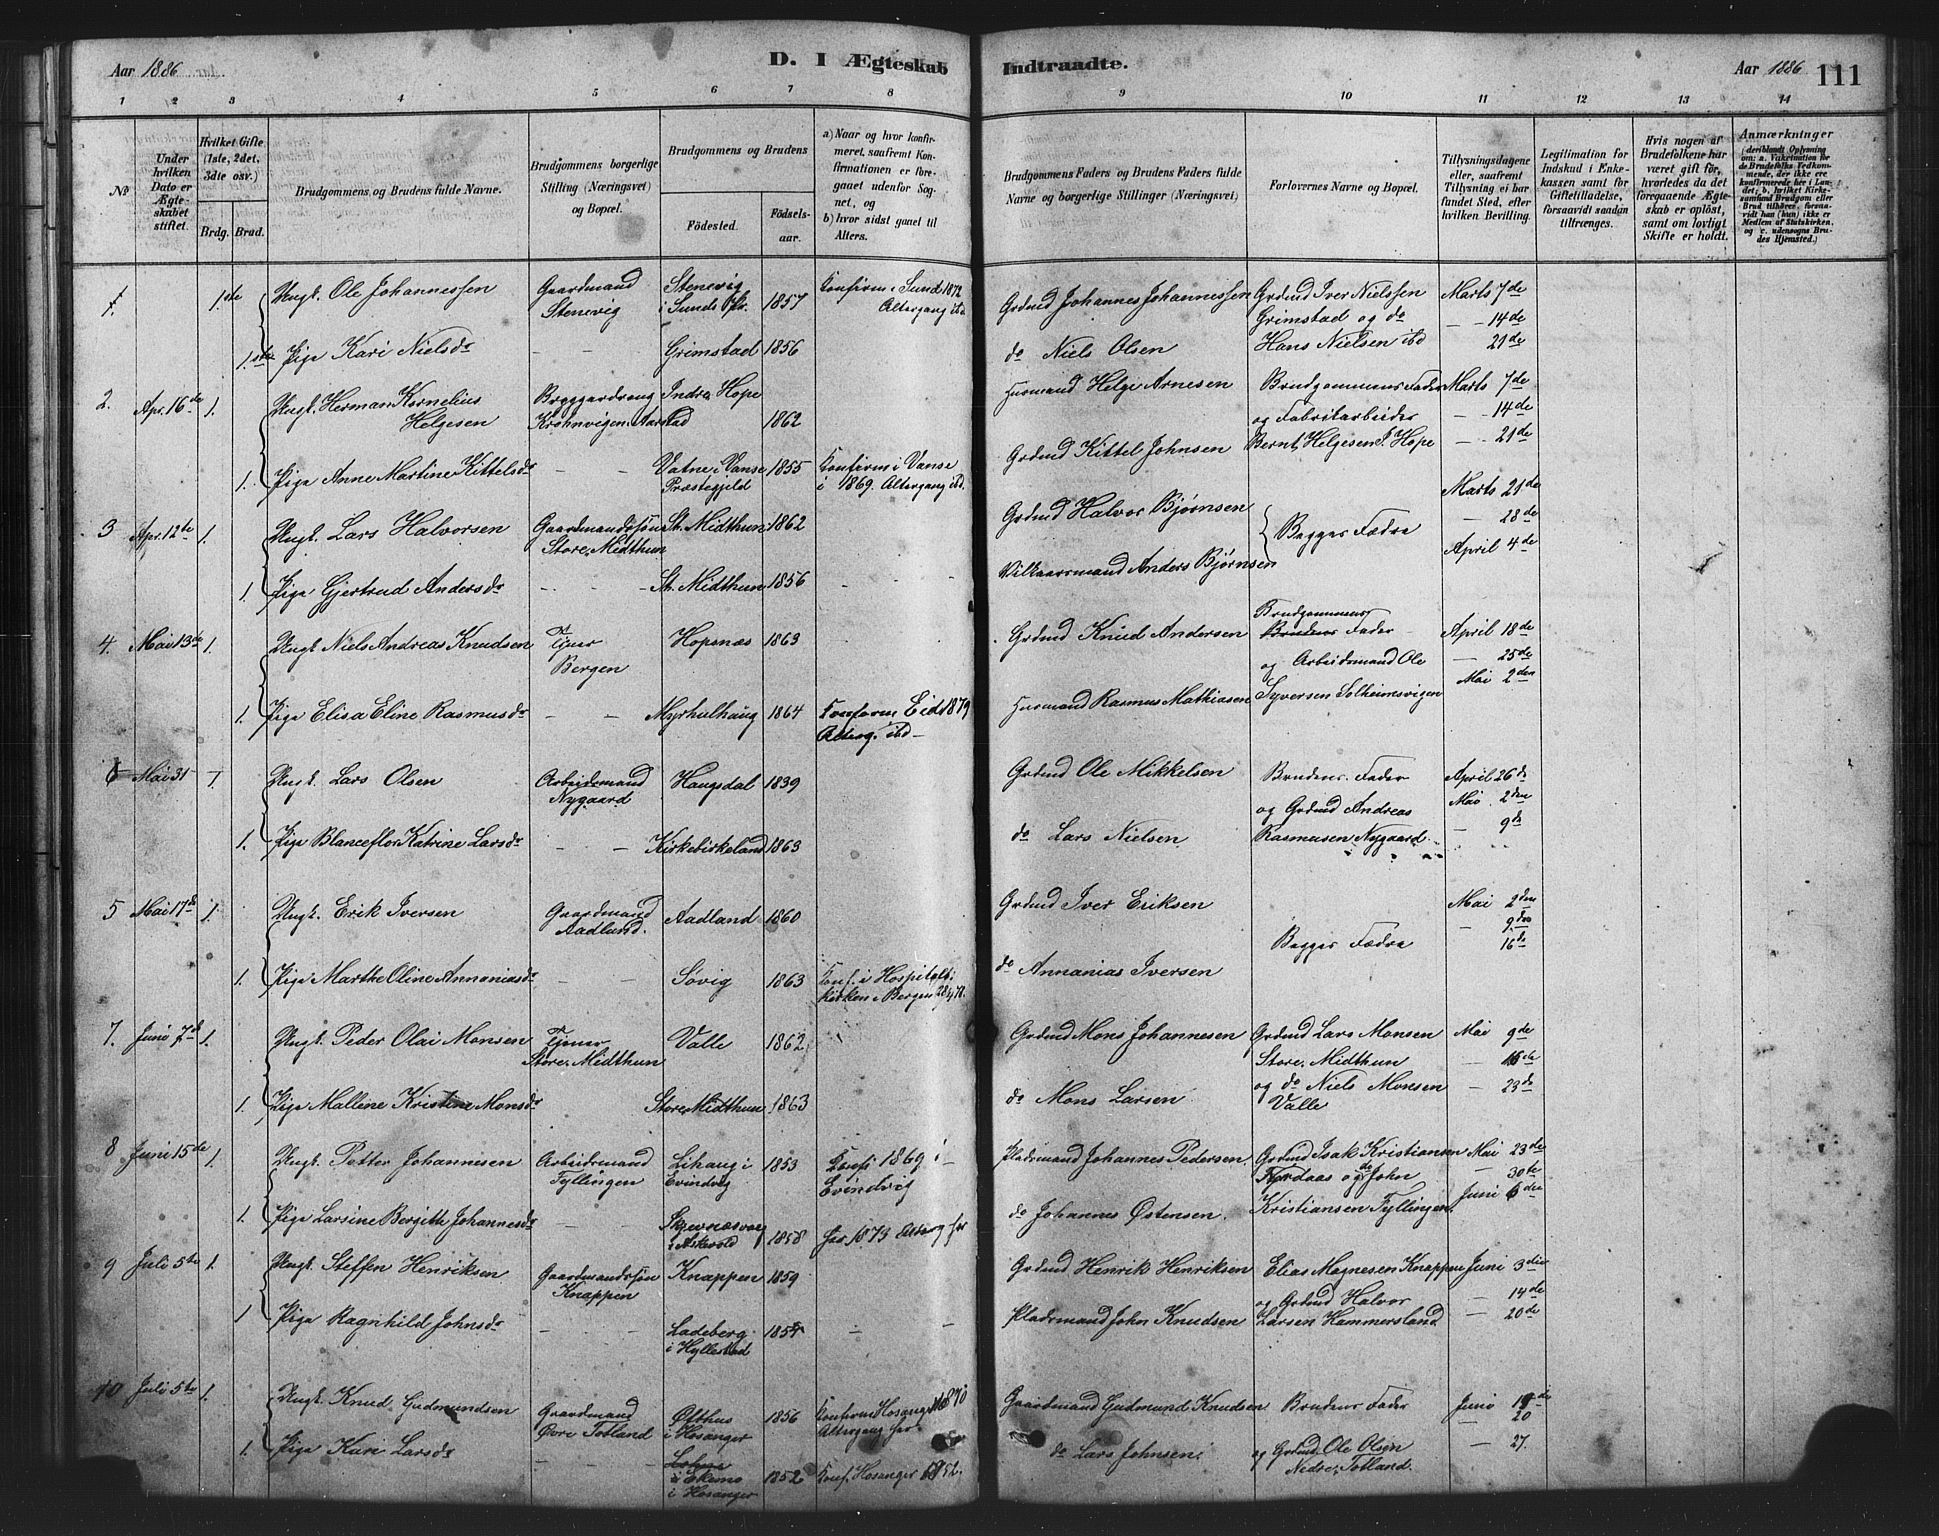 Aar 1886
D. I Ægteskab
1 2 3 4 5 6 7 8
№
Under hvilken Dato er Ægteskabet stiftet.
Hvilket Gifte (1ste, 2det, 3die osv.)
Brdg. Brud.
Brudgommens og Brudens fulde Navne.
Brudgommens borgerlige Stilling (Næringsvei) og Bopæl.
Brudgommens og Brudens
Fødested.
Fødselsaar.
a) Naar og hvor konfirmeret, saafremt Konfirmationen er foregaaet udenfor Sognet, og
b) hvor sidst gaaet til Alters.
1. 1ste Ungk. Ole Johannessen Gaardmand Stenevig Stenevig i Sunds Pr. 1857 Konfirm i Sund 1872 Altergang ibd
1ste Pige Kari Nielsdr — — Grimstad 1856
2. Apr. 16de 1. Ungk. Herman Kornelius Helgesen Bryggardreng Krohnvigen Aarstad Indre Hope 1862
1. Pige Anne Martine Kittelsdr — — Vatne i Vanse Præstegjeld 1855 Konfirm i Vanse i 1869. Altergang ibd.
3 Apr. 12te 1. Ungk. Lars Halvorsen Gaardmandssøn Store Midthun St. Midthun 1862
1. Pige Gjertrud Andersdr — — St. Midthun 1856 — —
4. Mai 13de 1. Ungk. Niels Andreas Knudsen Tjener Bergen Hopsnæs 1863
1. Pige Elisa Eline Rasmusdr — — Myrhulhaug 1864 Konfirm Eid 1879 Alterg. ibd —
6 Mai 31 1. Ungk. Lars Olsen Arbeidsmand Nygaard Haugsdal 1839
1. Pige Blanceflor Katrine Larsdr — — Kirkebirkeland 1863
5 Mai 17de 1. Ungk. Erik Iversen Gaardmand Aadland. Aadland 1860
1. Pige Marthe Oline Annaniasdr — — Søvig 1863 Konf. i Hospitalskirken i Bergen
7. Juni 7de 1. Ungk. Peder Olai Monsen Tjener Store Midthun Valle 1862
1. Pige Mallene Kristine Monsdr Store Midthun 1863
8 Juni 15de 1. Ungk. Petter Johannesen Arbeidsmand Fyllingen Lihaug i Evindvig 1853 Konf. 1869 i Evindvig
1. Pige Larsine Bergitte Johannesdr — — i Askevold 1858 her 1873 Alterg her
9 Juli 5te 1. Ungk. Steffen Henriksen Gaardmandssøn Knappen Knappen 1859
1 Pige Ragnhild Johnsdr — — Ladeberg i Hyllestad — —
10 Juli 5te 1. Ungk. Knud Gudmundsen Gaardmand Øvre Totland Ofthus i Hosanger 1856 Konfirm Hosanger 1870 Altergang her
1. Pige Kari Larsdr — — i Eknes i Hosanger 1852 Konf. Hosanger
Indtraadte.
Aar 1886 111
9 10 11 12 13 14
Brudgommens Faders og Brudens Faders fulde Navne og borgerlige Stillinger (Næringsvei)
Forlovernes Navne og Bopæl.
Tillysningsdagene eller, saafremt Tillysning ei har fundet Sted, efter hvilken Bevilling.
Legitimation for Indskud i Enkekassen samt for Giftetilladelse, forsaavidt saadan tiltrænges.
Hvis nogen af Brudefolkene har været gift før, hvorledes da det foregaaende Ægteskab er opløst, samt om lovligt Skifte er holdt.
Anmærkninger
(deriblandt Oplysning om: a. Vakcination for de Brudefolks Vedkommende, der ikke ere konfirmerede her i Landet; b. hvilket Kirkesamfund Brudgom eller Brud tilhører, forsaavidt han (hun) ikke er Medlem af Statskirken, og c. udensogns Brudes Hjemsted.)
Grdmd Johannes Johannessen Grdmd Iver Nielssen Grimstad og do Hans Nielsen ibd Marts 7de — 14de 21de
do Niels Olsen
Husmand Helge Arnesen Brudgommens Fader og Fabrikarbeider Bernt Helgesen I. Hope Marts 7de — 14de — 21de
Grdmd Kittel Johnsen
Grdmd Halvor Bjørnsen Begges Fædre Marts 21de — 28de April 4de
Vilkaarsmand Anders Bjørnsen
Grdmd Knud Andersen Brudgommens Fader og Arbeidsmand Ole Syversen Solheimsvigen April 18de — 25de Mai 2den
Husmand Rasmus Mathiasen
Grdmd Ole Mikkelsen Brudens Fader og Grdmd Andreas Rasmusen Nygaard April 26de Mai 2den — 9de
do Lars Nielsen
Grdmd Iver Eriksen Begges Fædre Mai 2den — 9de 16de
do Annanias Iversen
Grdmd Mons Johannesen Grdmd Lars Monsen Store Midthun og do Niels Monsen Valle Mai 9de — 16de — 23de
do Mons Larsen
Pladsmand Johannes Pedersen Grdmd Isak Kristiansen og do John Kristiansen Fyllingen. Mai 23de — 30te Juni 6de
do Johannes Østensen.
Grdmd Henrik Henriksen Elias Magnesen Knappen og Grdmd Halvor Larsen Hammersland Juni 3die — 14de — 20de
Pladsmand John Knudsen
Gaardmand Gudmund Knudsen Brudens Fader og Grdmd Ole Olsen Nedre Totland. Juni — 20 — 27.
do Lars Johnsen